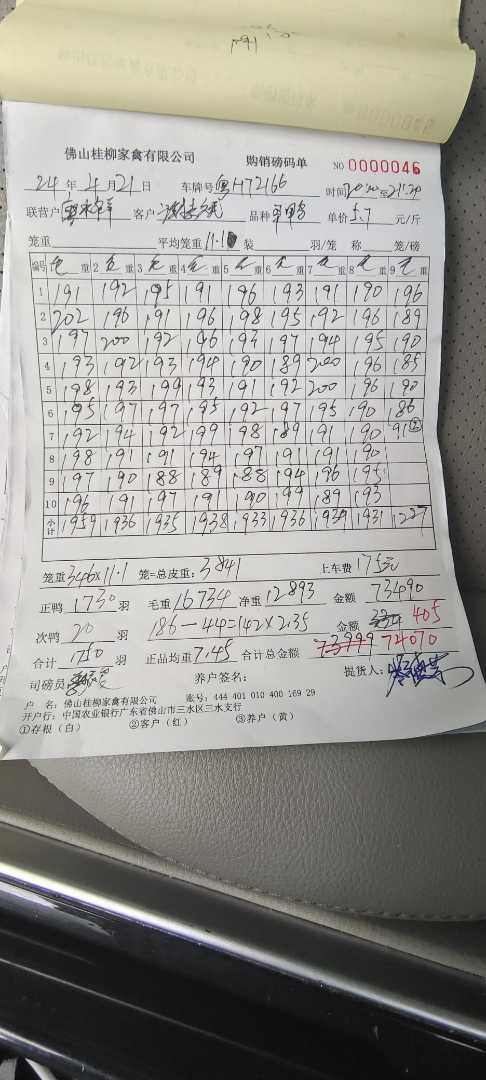 佛山桂柳家禽有限公司 购销磅码单 NO 0000046
24 年 4 月 21 日 车牌号 粤H72166 时间 至
联营户 客户 品种 单价 5.7 元/斤
笼重 平均笼重 11.1 装 羽/笼 称 笼/磅
编号 1 重 2 重 3 重 4 重 5 重 6 重 7 重 8 重 9 重
1 191 192 195 191 196 193 191 190 196
2 202 196 191 196 198 195 192 196 189
3 197 200 192 196 194 197 194 195 190
4 193 192 193 194 190 189 200 196 185
5 198 193 199 193 191 192 200 196 190
6 195 197 197 195 192 197 195 190 186
7 192 194 192 199 198 189 191 190 91②
8 198 191 191 194 197 191 191 190
9 197 190 188 189 188 194 196 195
10 196 191 197 191 190 199 189 193
小计 1959 1936 1935 1938 1933 1936 1939 1931 1227
笼重 346×11.1 笼=总皮重: 3841 上车费 175元
正鸭 1730 羽 毛重 16734 净重 12893 金额 73490
次鸭 20 羽 186-44=142×2.35 金额 334 405
合计 1750 羽 正品均重 7.45 合计总金额 73999 74070
司磅员: 养户签名: 提货人:
户 名: 佛山桂柳家禽有限公司 账号: 444 401 010 400 169 29
开户行: 中国农业银行广东省佛山市三水区三水支行
①存根(白) ②客户(红) ③养户(黄)